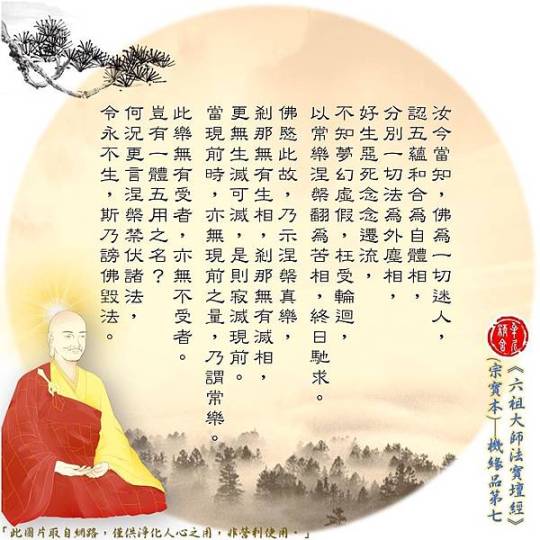 汝今當知，佛爲一切迷人，
認五蘊和合爲自體相，
分別一切法爲外塵相，
好生惡死念念遷流，
不知夢幻虛假，枉受輪迴，
以常樂涅槃翻爲苦相，終日馳求。
佛愍此故，乃示涅槃真樂，
剎那無有生相，剎那無有滅相，
更無生滅可滅，是則寂滅現前。
當現前時，亦無現前之量，乃謂常樂。
此樂無有受者，亦無不受者。
豈有一體五用之名？
何況更言涅槃禁伏諸法，
令永不生，斯乃謗佛毀法。
《六祖大師法寶壇經》
(宗寶本)—機緣品第七
「此圖片取自網路，僅供淨化人心之用，非營利使用。」